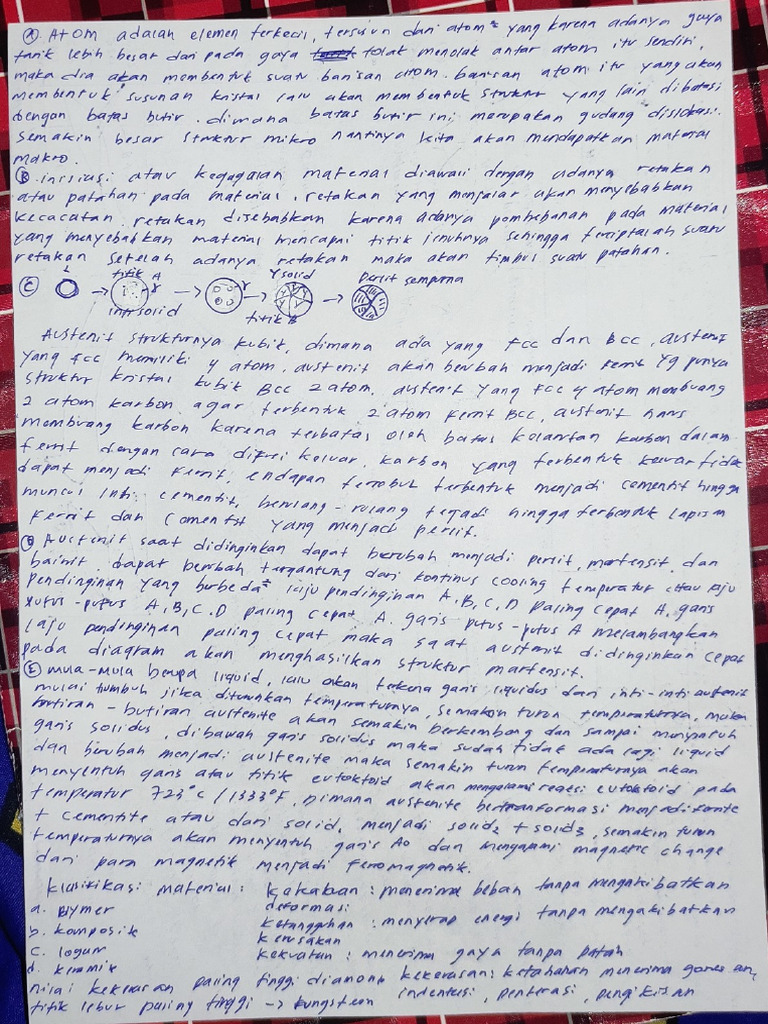 (A). Atom adalah elemen terkecil, tersusun dari atom² yang karena adanya gaya
tarik lebih besar dari pada gaya tolak menolak antar atom itu sendiri,
maka dia akan membentuk suatu barisan atom. barisan atom itu yang akan
membentuk susunan kristal lalu akan membentuk struktur yang lain dibatasi
dengan batas butir. dimana batas butir ini merupakan gudang dislokasi.
Semakin besar struktur mikro nantinya kita akan mendapatkan material
makro.
(B). inisiasi atau kegagalan material diawali dengan adanya retakan
atau patahan pada material, retakan yang menjalar akan menyebabkan
kecacatan. retakan disebabkan karena adanya pembebanan pada material
yang menyebabkan material mencapai titik jenuhnya sehingga terciptalah suatu
retakan setelah adanya retakan maka akan timbul suatu patahan.
(C) L → titik A γ → γ → γ solid → Perlit sempurna
inti solid titik B
Austenit strukturnya kubik, dimana ada yang FCC dan BCC, austenit
yang FCC memiliki 4 atom, austenit akan berubah menjadi Ferrit yg punya
struktur kristal kubik BCC 2 atom. austenit yang FCC 4 atom membuang
2 atom karbon agar terbentuk 2 atom Ferrit BCC, austenit harus
membuang karbon karena terbatas oleh batas kelarutan karbon dalam
ferrit dengan cara difusi keluar, karbon yang terbentuk keluar tidak
dapat menjadi Ferrit, endapan tersebut terbentuk menjadi cementit hingga
muncul inti cementit, berulang-ulang terjadi hingga terbentuk lapisan
Ferrit dan Cementit yang menjadi perlit.
(D) Austenit saat didinginkan dapat berubah menjadi perlit, martensit dan
bainit. dapat berubah tergantung dari kontinus cooling temperatur atau laju
pendinginan yang berbeda² laju pendinginan A, B, C, D paling cepat A. garis
putus-putus A, B, C, D paling cepat A. garis putus-putus A melambangkan
laju pendinginan paling cepat maka saat austenit didinginkan cepat
pada diagram akan menghasilkan struktur martensit.
(E) mula-mula berupa liquid, lalu akan terkena garis liquidus dan inti-inti austenit
mulai tumbuh jika diturunkan temperaturnya, semakin turun temperaturnya, maka
butiran-butiran austenite akan semakin berkembang dan sampai menyentuh
garis solidus, dibawah garis solidus maka sudah tidak ada lagi liquid
dan berubah menjadi austenite maka semakin turun temperaturnya akan
menyentuh garis atau titik eutoktoid akan mengalami reaksi eutoktoid pada
temperatur 723°C / 1333°F, Dimana austenite bertransformasi menjadi ferrite
+ cementite atau dari solid, menjadi solid2 + solid3, semakin turun
temperaturnya akan menyentuh garis A0 dan mengalami magnetic change
dari para magnetik menjadi Feromagnetik.
Klasifikasi material : kekakuan : menerima beban tanpa mengakibatkan
a. Polymer deformasi
b. komposik ketangguhan : menyerap energi tanpa mengakibatkan
kerusakan
c. logam kekuatan : menerima gaya tanpa patah
d. keramik
nilai kekerasan paling tinggi diamond kekerasan : ketahanan menerima goresan,
titik lebur paling tinggi → tungsten indentasi, penetrasi, pengikisan